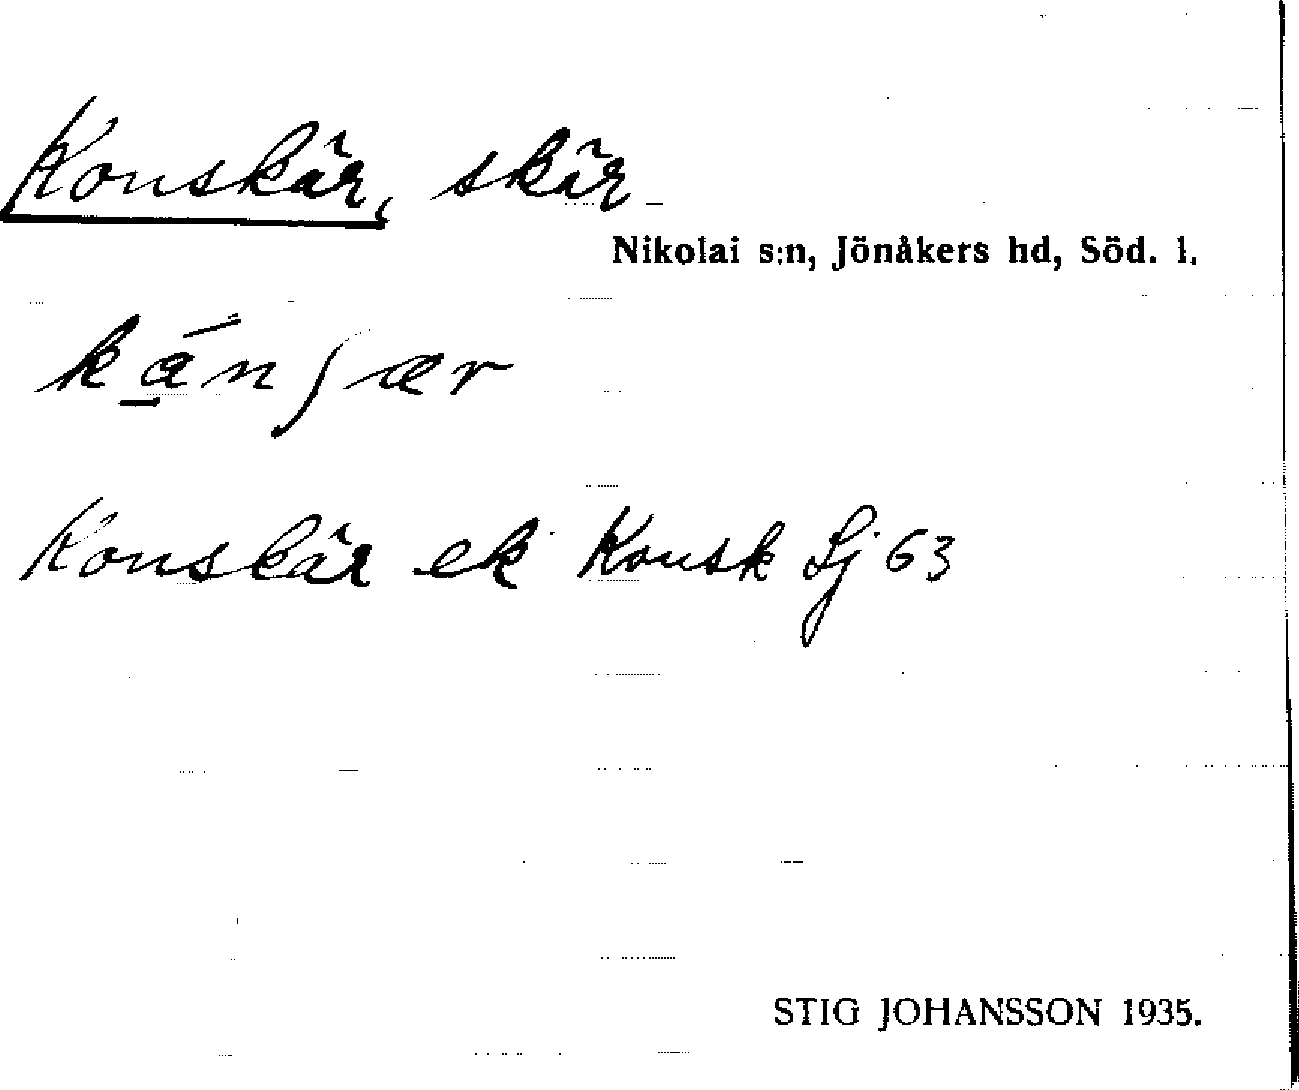 Konskär, skär
Nikolai s:n, Jönåkers hd, Söd. l.
kån∫ær
Konskär ek Konsk Sj 63
STIG JOHANSSON 1935.